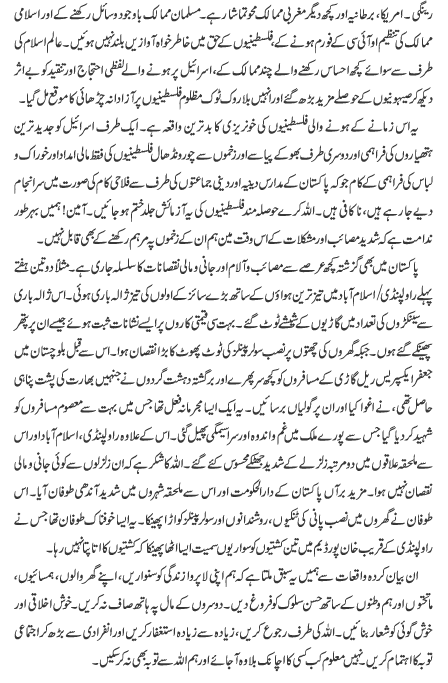 رینگی۔ امریکا، برطانیہ اور کچھ دیگر مغربی ممالک محو تماشا رہے۔ مسلمان ممالک باوجود وسائل رکھنے کے اور اسلامی
ممالک کی تنظیم او آئی سی کے فورم ہونے کے، فلسطینیوں کے حق میں خاطر خواہ آوازیں بلند نہیں ہوئیں۔ عالم اسلام کی
طرف سے سوائے کچھ احساس رکھنے والے چند ممالک کے، اسرائیل پر ہونے والے لفظی احتجاج اور تنقید کو بے اثر
دیکھ کر صیہونیوں کے حوصلے مزید بڑھ گئے اور انہیں بلا روک ٹوک مظلوم فلسطینیوں پر آزادانہ چڑھائی کا موقع مل گیا۔
یہ اس زمانے کے ہونے والی فلسطینیوں کی خونریزی کا بدترین واقعہ ہے۔ ایک طرف اسرائیل کو جدید ترین
ہتھیاروں کی فراہمی اور دوسری طرف بھوکے پیاسے اور زخموں سے چور و نڈھال فلسطینیوں کی فقط مالی امداد اور خوراک و
لباس کی فراہمی کے کام جو کہ پاکستان کے مدارس دینیہ اور دینی جماعتوں کی طرف سے فلاحی کام کی صورت میں سرانجام
دیے جا رہے ہیں، ناکافی ہیں۔ اللہ کرے حوصلہ مند فلسطینیوں کی یہ آزمائش جلد ختم ہو جائیں۔ آمین! ہمیں بہر طور
ندامت ہے کہ شدید مصائب اور مشکلات کے اس وقت میں ہم ان کے زخموں پہ مرہم رکھنے کے بھی قابل نہیں۔
پاکستان میں بھی گزشتہ کچھ عرصے سے مصائب و آلام اور جانی و مالی نقصانات کا سلسلہ جاری ہے۔ مثلاً دو تین ہفتے
پہلے راولپنڈی/ اسلام آباد میں تیز ترین ہواؤں کے ساتھ بڑے سائز کے اولوں کی تیز ژالہ باری ہوئی۔ اس ژالہ باری
سے سینکڑوں کی تعداد میں گاڑیوں کے شیشے ٹوٹ گئے۔ بہت سی قیمتی کاروں پر ایسے نشانات ثبت ہوئے جیسے ان پر پتھر
پھینکے گئے ہوں۔ جبکہ گھروں کی چھتوں پر نصب سولر پینلز کی ٹوٹ پھوٹ کا بڑا نقصان ہوا۔ اس سے قبل بلوچستان میں
جعفر ایکسپریس ریل گاڑی کے مسافروں کو کچھ سرپھرے اور برگشتہ دہشت گردوں نے جنہیں بھارت کی پشت پناہی
حاصل تھی، نے اغوا کیا اور ان پر گولیاں برسائیں۔ یہ ایک ایسا مجرمانہ فعل تھا جس میں بہت سے معصوم مسافروں کو
شہید کر دیا گیا جس سے پورے ملک میں غم و اندوہ اور سراسیمگی پھیل گئی۔ اس کے علاوہ راولپنڈی، اسلام آباد اور اس
سے ملحقہ علاقوں میں دو مرتبہ زلزلے کے شدید جھٹکے محسوس کئے گئے۔ اللہ کا شکر ہے کہ ان زلزلوں سے کوئی جانی و مالی
نقصان نہیں ہوا۔ مزید برآں پاکستان کے دارالحکومت اور اس سے ملحقہ شہروں میں شدید آندھی طوفان آیا۔ اس
طوفان نے گھروں میں نصب پانی کی ٹنکیوں، روشندانوں اور سولر پینلز کو اڑا پھینکا۔ یہ ایسا خوفناک طوفان تھا جس نے
راولپنڈی کے قریب خان پور ڈیم میں تین کشتیوں کو سواریوں سمیت ایسا اٹھا پھینکا کہ کشتیوں کا اتا پتا نہیں رہا۔
ان بیان کردہ واقعات سے ہمیں یہ سبق ملتا ہے کہ ہم اپنی لاپروا زندگی کو سنواریں، اپنے گھر والوں، ہمسائیوں،
ماتحتوں اور ہم وطنوں کے ساتھ حسن سلوک کو فروغ دیں۔ دوسروں کے مال پہ ہاتھ صاف نہ کریں۔ خوش اخلاقی اور
خوش گوئی کو شعار بنائیں۔ اللہ کی طرف رجوع کریں، زیادہ سے زیادہ استغفار کریں اور انفرادی سے بڑھ کر اجتماعی
توبہ کا اہتمام کریں۔ نہیں معلوم کب کسی کا اچانک بلاوہ آ جائے اور ہم اللہ سے توبہ بھی نہ کر سکیں۔